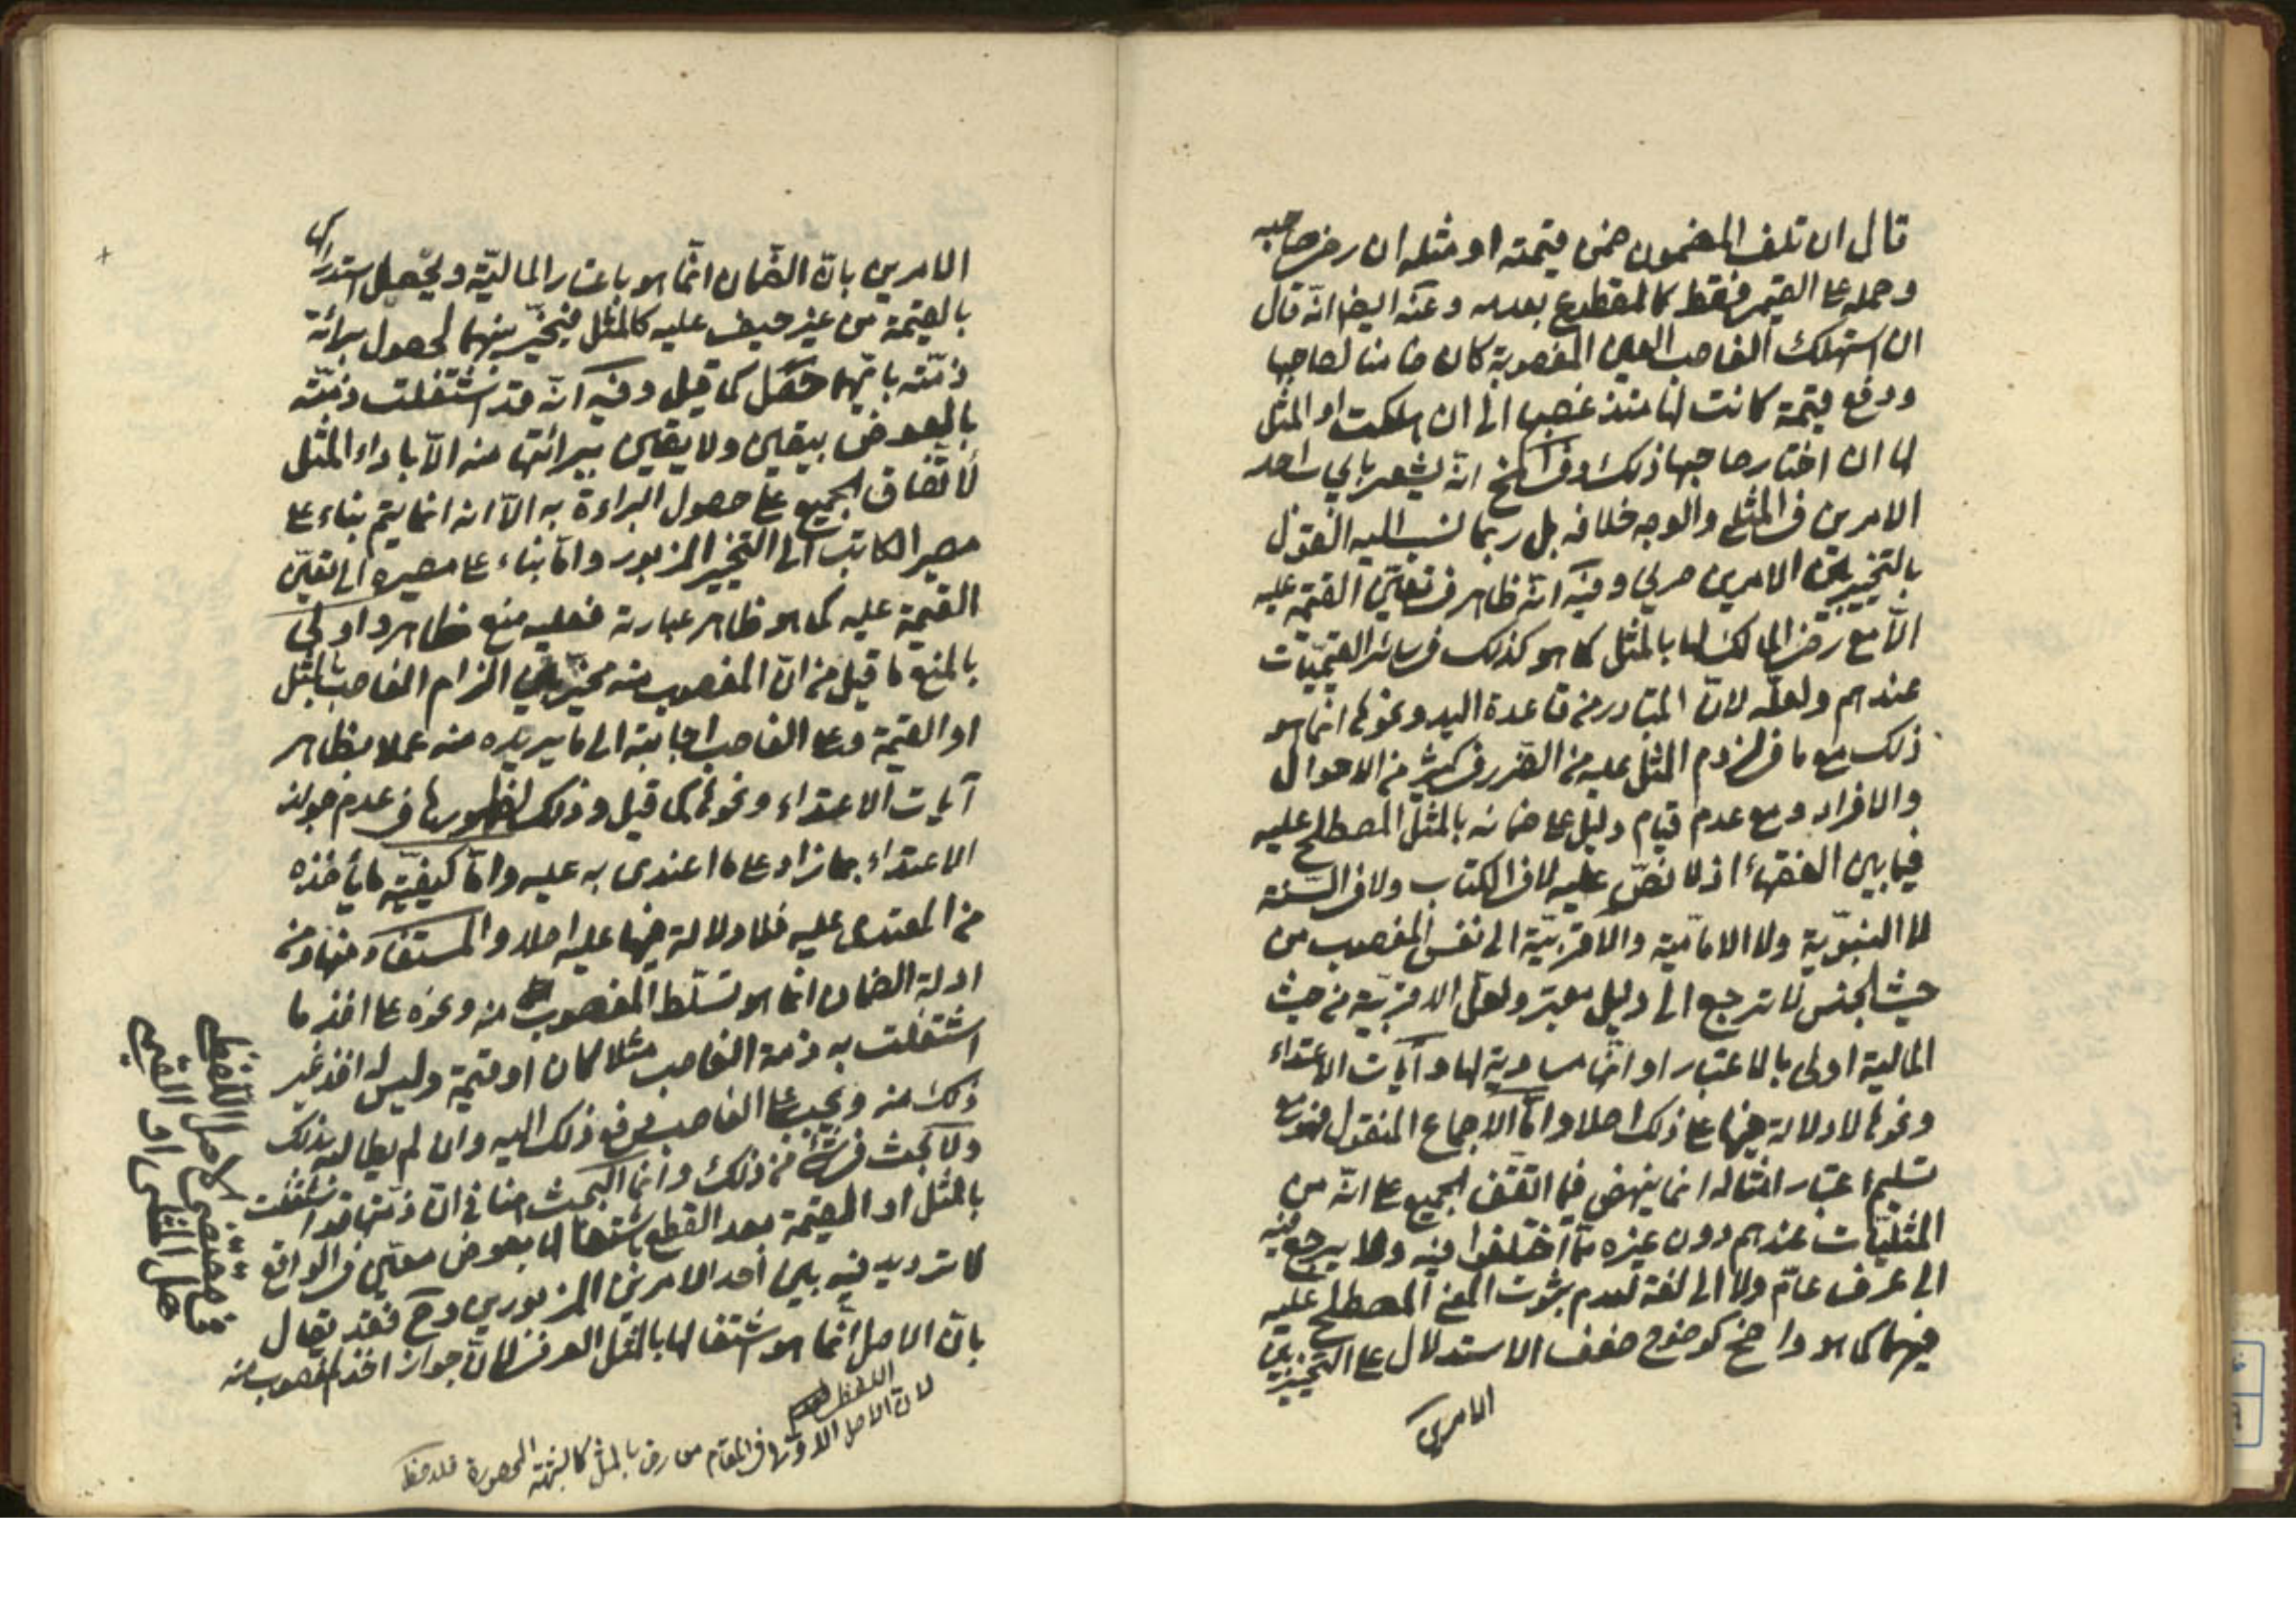 قال ان تلف المضمون ضمن قيمته او مثله ان رضى صاحبه
وحمله على القيمى فقط كالمقطوع بعدمه وعنه ايضا انّه قال
ان استهلك الغاصب العين المغصوبة كان ضامنا لصاحبها
ودفع قيمة كانت لها منذ غصبها الى ان هلكت او المثل
لها ان اختار صاحبها ذلك وفى انه يشعر باحد
الامرين فى المثلى والوجه خلافه بل ربما نسب اليه القول
بالتخيير بين الامرين صريحا وفيه انّه ظاهر فى تعيّن القيمة عليه
الّا مع رضى المالك لها بالمثل كما هو كذلك فى سائر القيميّات
عندهم ولعلّه لانّ المتبادر من قاعدة اليد ونحوها انما هو
ذلك مع ما فى لزوم المثل عليه من الضرر فى كثير من الاحوال
والافراد ومع عدم قيام دليل على ضمانه بالمثل المصطلح عليه
فيما بين الفقهاء اذ لا نصّ عليه لا فى الكتاب ولا فى السنة
لا النبويّة ولا الاماميّة والاقربيّة الى نفس المغصوب من
حيث الجنس لا ترجع الى دليل معتبر ولعلّ الاقربيّة من حيث
المالية اولى بالاعتبار او انّها مساوية لها وآيات الاعتداء
ونحوها لا دلالة فيها على ذلك اصلا وامّا الاجماع المنقول فهو مع
تسليم اعتبار امثاله انما ينهض فيما اتّفق الجميع على انّه من
المثليّات عندهم دون غيره ممّا اختلفوا فيه ولا يرجع فيه
الى عرف عامّ ولا الى لغة لعدم ثبوت المعنى المصطلح عليه
فيهما كما هو واضح كوضوح ضعف الاستدلال على التخيير بين
الامرين
الامرين بانّ الضمان انّما هو باعتبار الماليّة ويحصل استدراكها
بالقيمة من غير حيف عليه كالمثل فيتخيّر بينهما لحصول برائة
ذمّته بايّهما حصل كما قيل وفيه انّه قد اشتغلت ذمّته
بالعوض بيقين ولا يقين ببرائتها منه الّا باداء المثل
لاتفاق الجميع على حصول البراءة به الّا انه انما يتم بناء على
مصير الكاتب الى التخيير المزبور وامّا بناء على مصيره الى تعيّن
القيمة عليه كما هو ظاهر عبارته فعليه منع ظاهر واولى
بالمنع ما قيل من انّ المغصوب منه مخيّر بين الزام الغاصب بالمثل
او القيمة وعلى الغاصب اجابته الى ما يريده منه عملا بظاهر
آيات الاعتداء ونحوها كما قيل وذلك لظهورها فى عدم جواز
الاعتداء بما زاد على ما اعتدى به عليه وامّا كيفيّة ما يأخذه
من المعتدى عليه فلا دلالة فيها عليه اصلا والمستفاد منها ومن
ادلة الضمان انما هو تسلّط المغصوب منه ونحوه على اخذ ما
اشتغلت به ذمة الغاصب مثلا كان او قيمة وليس له اخذ غير
ذلك منه ويجب على الغاصب دفع ذلك اليه وان لم يطالبه بذلك
ولا بحث فى شئ من ذلك وانما البحث هنا فى انّ ذمّته قد اشتغلت
بالمثل او القيمة بعد القطع باشتغالها بعوض معيّن فى الواقع
لا ترديد فيه بين احد الامرين المزبورين وح فقد يقال
بانّ الاصل انّما هو اشتغالها بالمثل العرفى لانّ جواز اخذ المغصوب منه
لانّ الاصل فى المقام من رضى بالمثل المحصورة فلاحظ